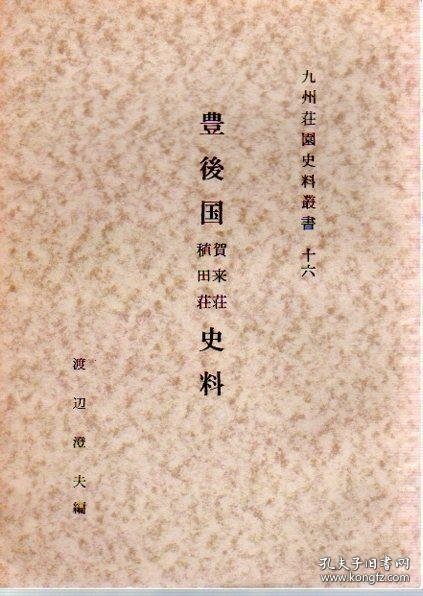 九州荘園史料叢書 十六
豊後国
賀来荘
稙田荘
史料
渡辺澄夫編
孔夫子旧书网
www.kongfz.com